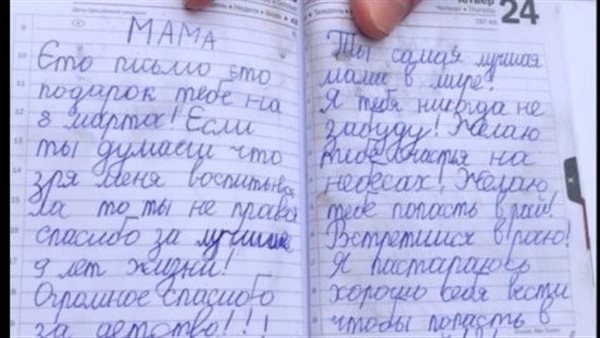 МАМА
Єто пісьмо єто
подарок тебе на
8 марта! Если
ты думаеш что
зря меня воспитыва
ла то ты не права
спасибо за лучшие
9 лет жизни!
Огромное спасибо
за детство!!!
24
Четверг • Thursday
Ты самая лучшая
мама в мире!
Я тебя никогда не
забуду! Желаю
тебе счастья на
небесах! Желаю
тебе попасть в рай!
Встретимся в раю!
Я постараюсь
хорошо себя вести
чтобы попасть в